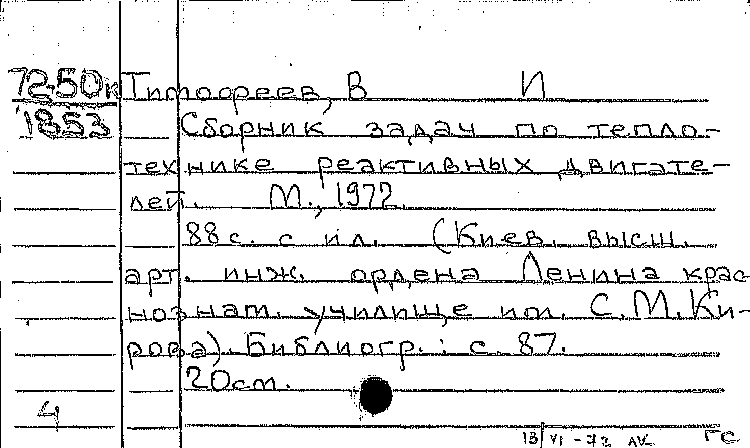 72-50к Тимофеев, В И
1853 Сборник задач по тепло-
технике реактивных двигате-
лей. М., 1972.
88 с. с ил. (Киев. высш.
арт. инж. ордена Ленина крас
нознам. училище им. С.М.Ки-
рова). Библиогр.: с. 87.
20см.
4
13/VI-72 ГС